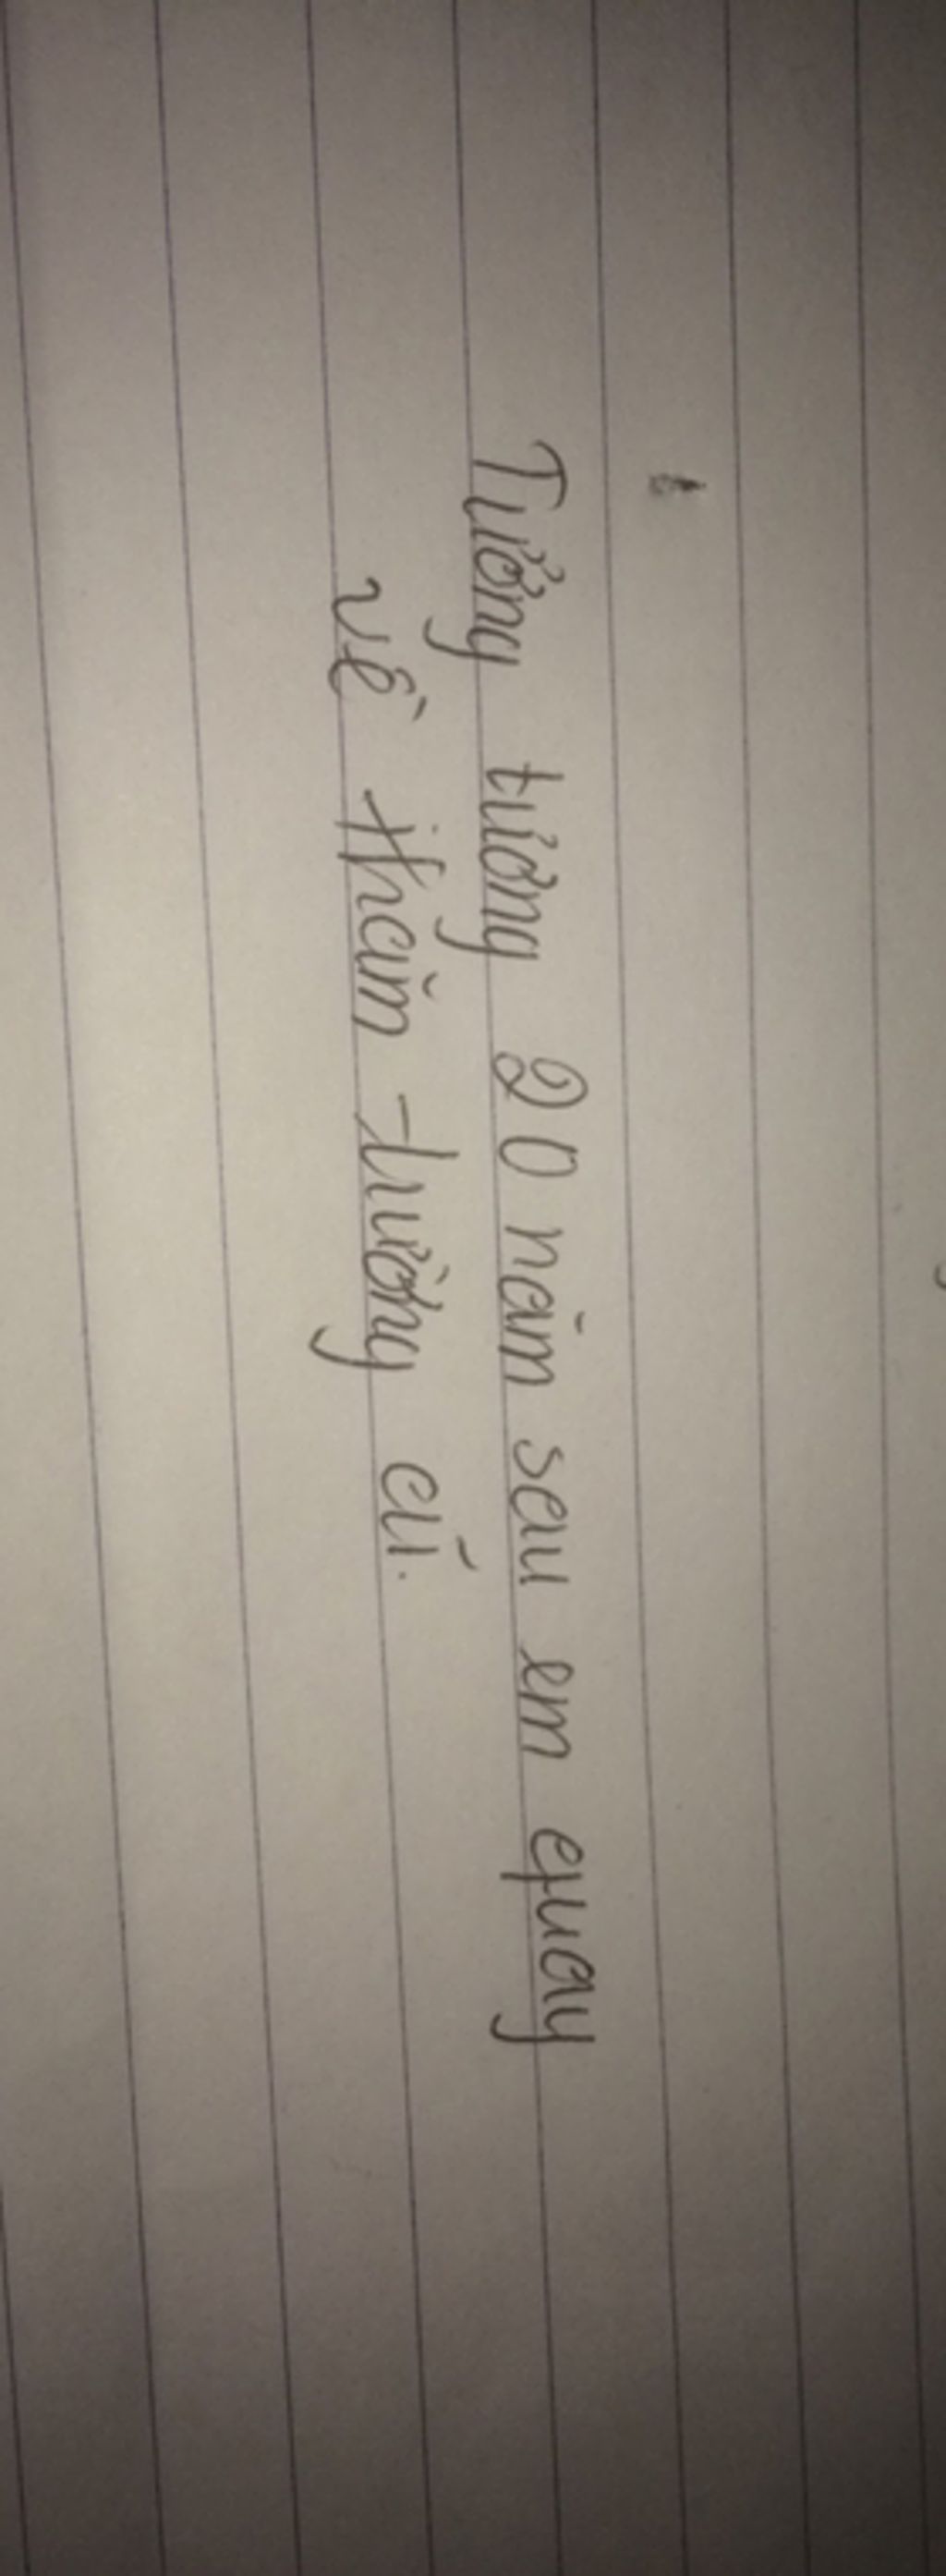 Tưởng tượng 20 năm sau em quay
về thăm trường cũ.